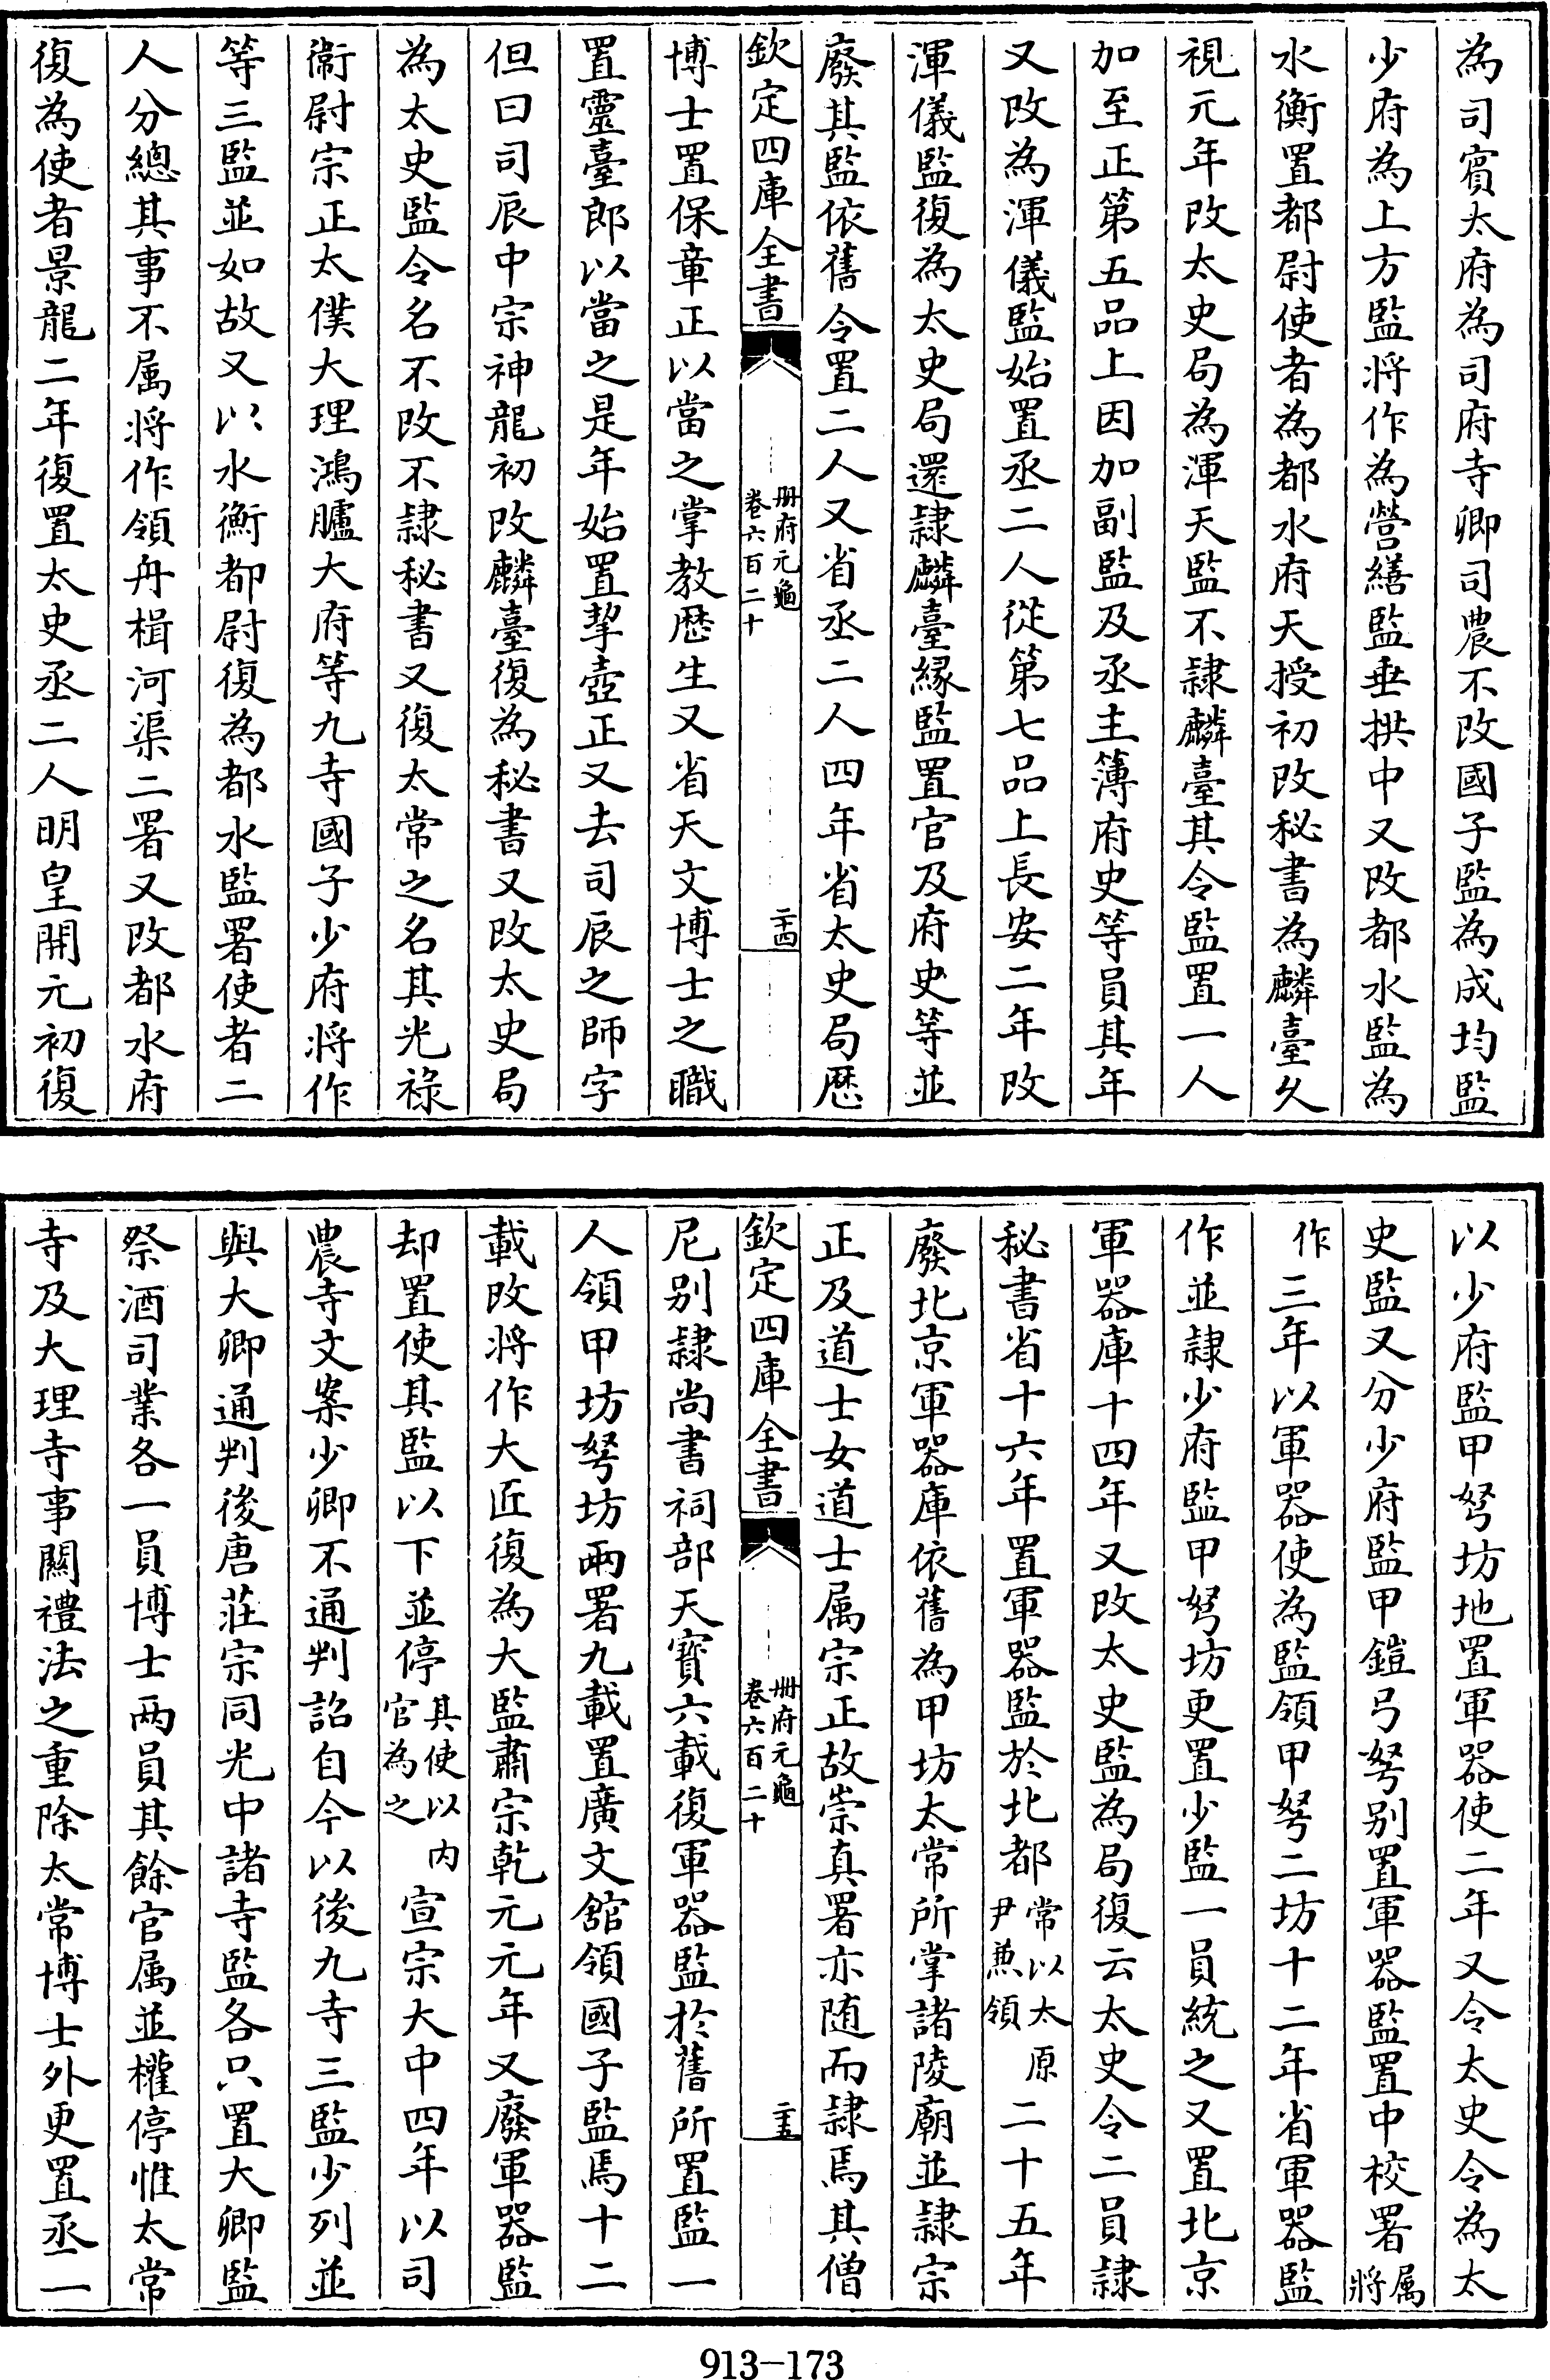 為司賓太府為司府寺卿司農不改國子監為成均監
少府為上方監將作為營繕監垂拱中又改都水監為
水衡置都尉使者為都水府天授初改秘書為麟臺久
視元年改太史局為渾天監不隷麟臺其令監置一人
加至正第五品上因加副監及丞主簿府史等員其年
又改為渾儀監始置丞二人從第七品上長安二年改
渾儀監復為太史局還隷麟臺緣監置官及府史等並
廢其監依舊令置二人又省丞二人四年省太史局歴
欽定四庫全書 冊府元龜 卷六百二十 二十四
博士置保章正以當之掌教歴生又省天文博士之職
置靈臺郎以當之是年始置挈壺正又去司辰之師字
但曰司辰中宗神龍初改麟臺復為秘書又改太史局
為太史監令名不改不隷秘書又復太常之名其光祿
衞尉宗正太僕大理鴻臚大府等九寺國子少府將作
等三監並如故又以水衡都尉復為都水監署使者二
人分總其事不属將作領舟楫河渠二署又改都水府
復為使者景龍二年復置太史丞二人明皇開元初復
以少府監甲弩坊地置軍器使二年又令太史令為太
史監又分少府監甲鎧弓弩别置軍器監置中校署属將
作三年以軍器使為監領甲弩二坊十二年省軍器監
作並隷少府監甲弩坊更置少監一員統之又置北京
軍器庫十四年又改太史監為局復云太史令二員隷
秘書省十六年置軍器監於北都常以太原尹兼領二十五年
廢北京軍器庫依舊為甲坊太常所掌諸陵廟並隷宗
正及道士女道士属宗正故崇真署亦随而隷焉其僧
欽定四庫全書 冊府元龜 卷六百二十 二十五
尼别隷尚書祠部天寳六載復軍器監於舊所置監一
人領甲坊弩坊兩署九載置廣文舘領國子監焉十二
載改將作大匠復為大監肅宗乾元元年又廢軍器監
却置使其監以下並停其使以内官為之宣宗大中四年以司
農寺文案少卿不通判詔自今以後九寺三監少列並
與大卿通判後唐莊宗同光中諸寺監各只置大卿監
祭酒司業各一員博士两員其餘官属並權停惟太常
寺及大理寺事關禮法之重除太常博士外更置丞一
913-173